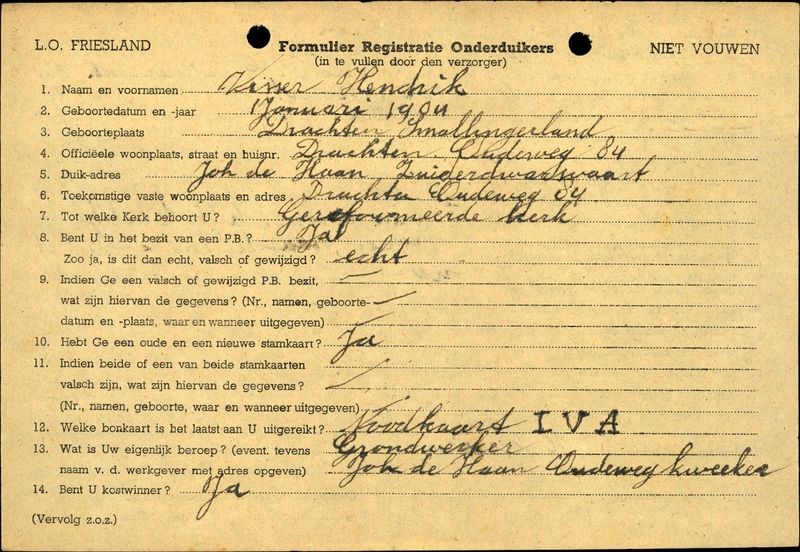 L.O. FRIESLAND Formulier Registratie Onderduikers NIET VOUWEN
(in te vullen door den verzorger)
1. Naam en voornamen Visser Hendrik
2. Geboortedatum en -jaar 1 Januari 1904
3. Geboorteplaats Drachten Smallingerland
4. Officiëele woonplaats, straat en huisnr. Drachten Oudeweg 84
5. Duik-adres Joh de Haan Zuiderdwarsvaart
6. Toekomstige vaste woonplaats en adres Drachten Oudeweg 84
7. Tot welke Kerk behoort U? Gereformeerde Kerk
8. Bent U in het bezit van een P.B.? Ja
Zoo ja, is dit dan echt, valsch of gewijzigd? echt
9. Indien Ge een valsch of gewijzigd P.B. bezit, —
wat zijn hiervan de gegevens? (Nr., namen, geboorte- —
datum en -plaats, waar en wanneer uitgegeven) —
10. Hebt Ge een oude en een nieuwe stamkaart? Ja
11. Indien beide of een van beide stamkaarten
valsch zijn, wat zijn hiervan de gegevens? —
(Nr., namen, geboorte, waar en wanneer uitgegeven) —
12. Welke bonkaart is het laatst aan U uitgereikt? Noodkaart I V A
13. Wat is Uw eigenlijk beroep? (event. tevens Grondwerker
naam v. d. werkgever met adres opgeven) Joh de Haan Oudeweg kweeker
14. Bent U kostwinner? Ja
(Vervolg z.o.z.)